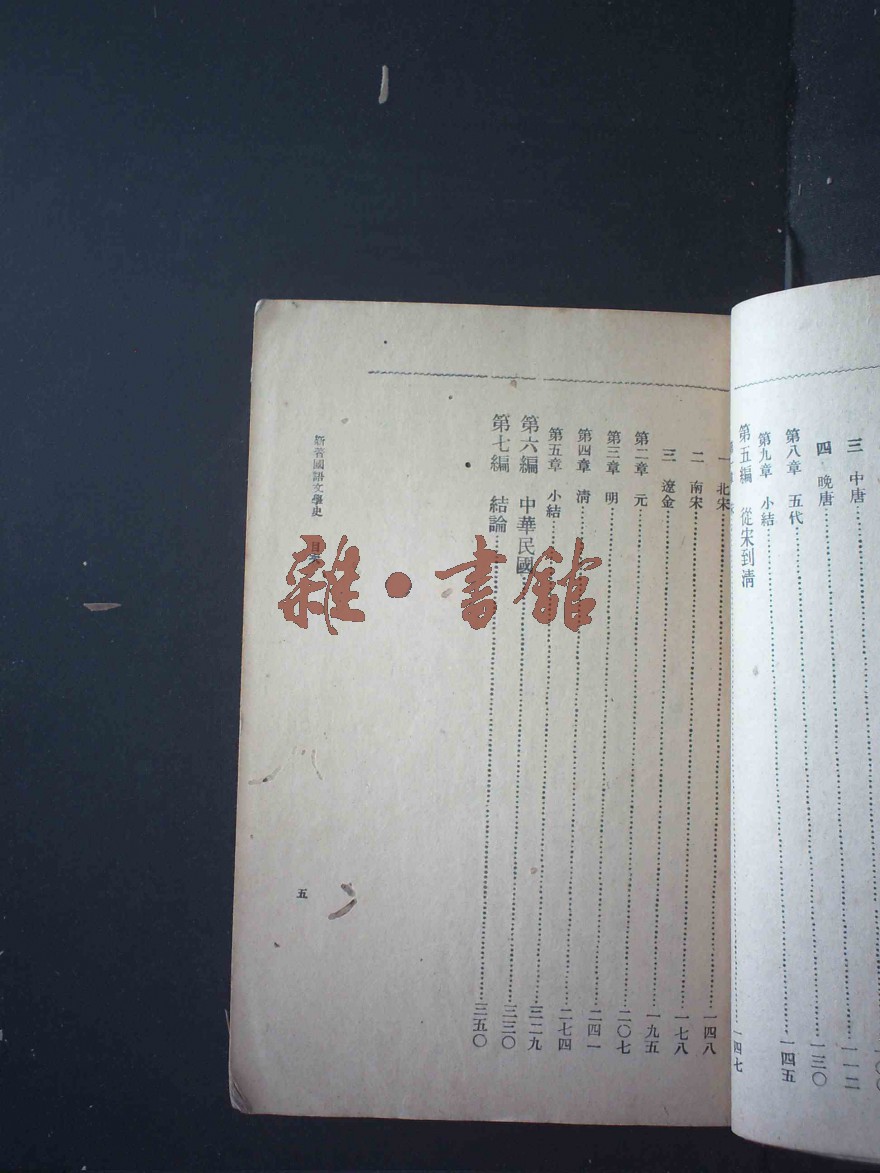 三 中唐……一一二
四 晚唐……一三〇
第八章 五代……一四五
第九章 小結……一四七
第五編 從宋到清
一 北宋……一四八
二 南宋……一七八
三 遼金……一九五
第二章 元……二〇七
第三章 明……二四一
第四章 清……二七四
第五章 小結……三二九
第六編 中華民國……三三〇
第七編 結論……三五〇
新著國語文學史 目次
五
雜·書館